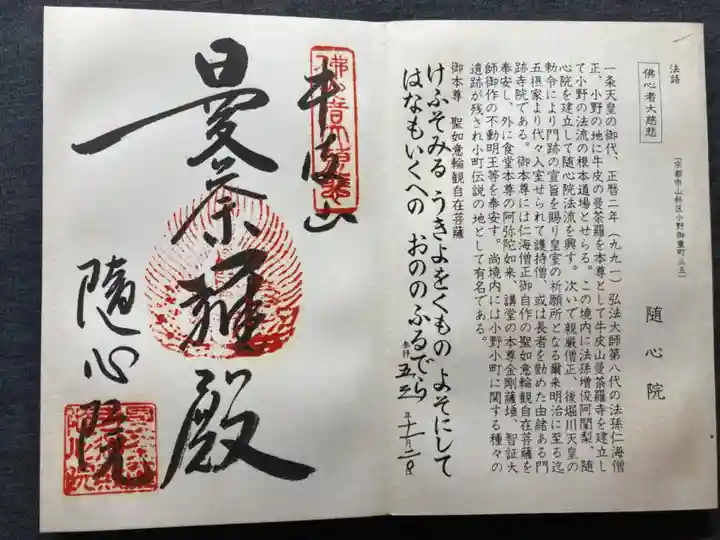 随心院
(京都市山科区小野御霊町三五)
法語
佛心者大慈悲
一条天皇の御代、正暦二年(九九一)弘法大師第八代の法孫仁海僧
正、小野の地に牛皮の曼荼羅を本尊として牛皮山曼荼羅寺を建立し
て小野の法流の根本道場とせらる。この境内に法孫増俊阿闍梨、随
心院を建立して随心院法流を興す。次いで親厳僧正、後堀川天皇の
勅令により門跡の宣旨を賜り皇室の祈願所となる爾来明治に至る迄
五摂家より代々入室せられて護持僧、或は長者を勤めた由緒ある門
跡寺院である。御本尊には仁海僧正御自作の聖如意輪観自在菩薩を
奉安し、外に食堂本尊の阿弥陀如来、講堂の本尊金剛薩埵、智証大
師御作の不動明王等を奉安す。尚境内には小野小町に関する種々の
遺跡が残され小町伝説の地として有名である。
御本尊 聖如意輪観自在菩薩
けふそみる うきよをくものよそにして
はなもいくへの おののふるでら
五年十一月二日
牛皮山
曼荼羅殿
随心院